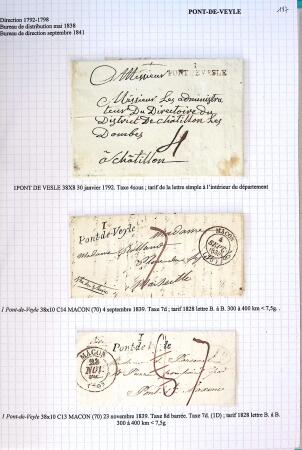 PONT-DE-VEYLE
197
Direction 1792-1798
Bureau de distribution mai 1838
Bureau de direction septembre 1841
1
PONT DE VESLE
A Monsieur
Messieur Les administra
teur Du Directoire du
District De châtillon Les
Dombes
4
à châtillon
1PONT DE VESLE 38X8 30 janvier 1792. Taxe 4sous ; tarif de la lettre simple à l'intérieur du département
1
Pont-de-Veyle
MACON
4
SEPT
1839
Madame
Madame
7
Marseille
1 Pont-de-Veyle 38x10 C14 MACON (70) 4 septembre 1839. Taxe 7d ; tarif 1828 lettre B. à B. 300 à 400 km < 7,5g. .
MACON
23
NOV.
1
Pont-de-Veyle
7
1 Pont-de-Veyle 38x10 C13 MACON (70) 23 novembre 1839. Taxe 8d barrée. Taxe 7d. (1D) ; tarif 1828 lettre B. à B.
300 à 400 km < 7,5g